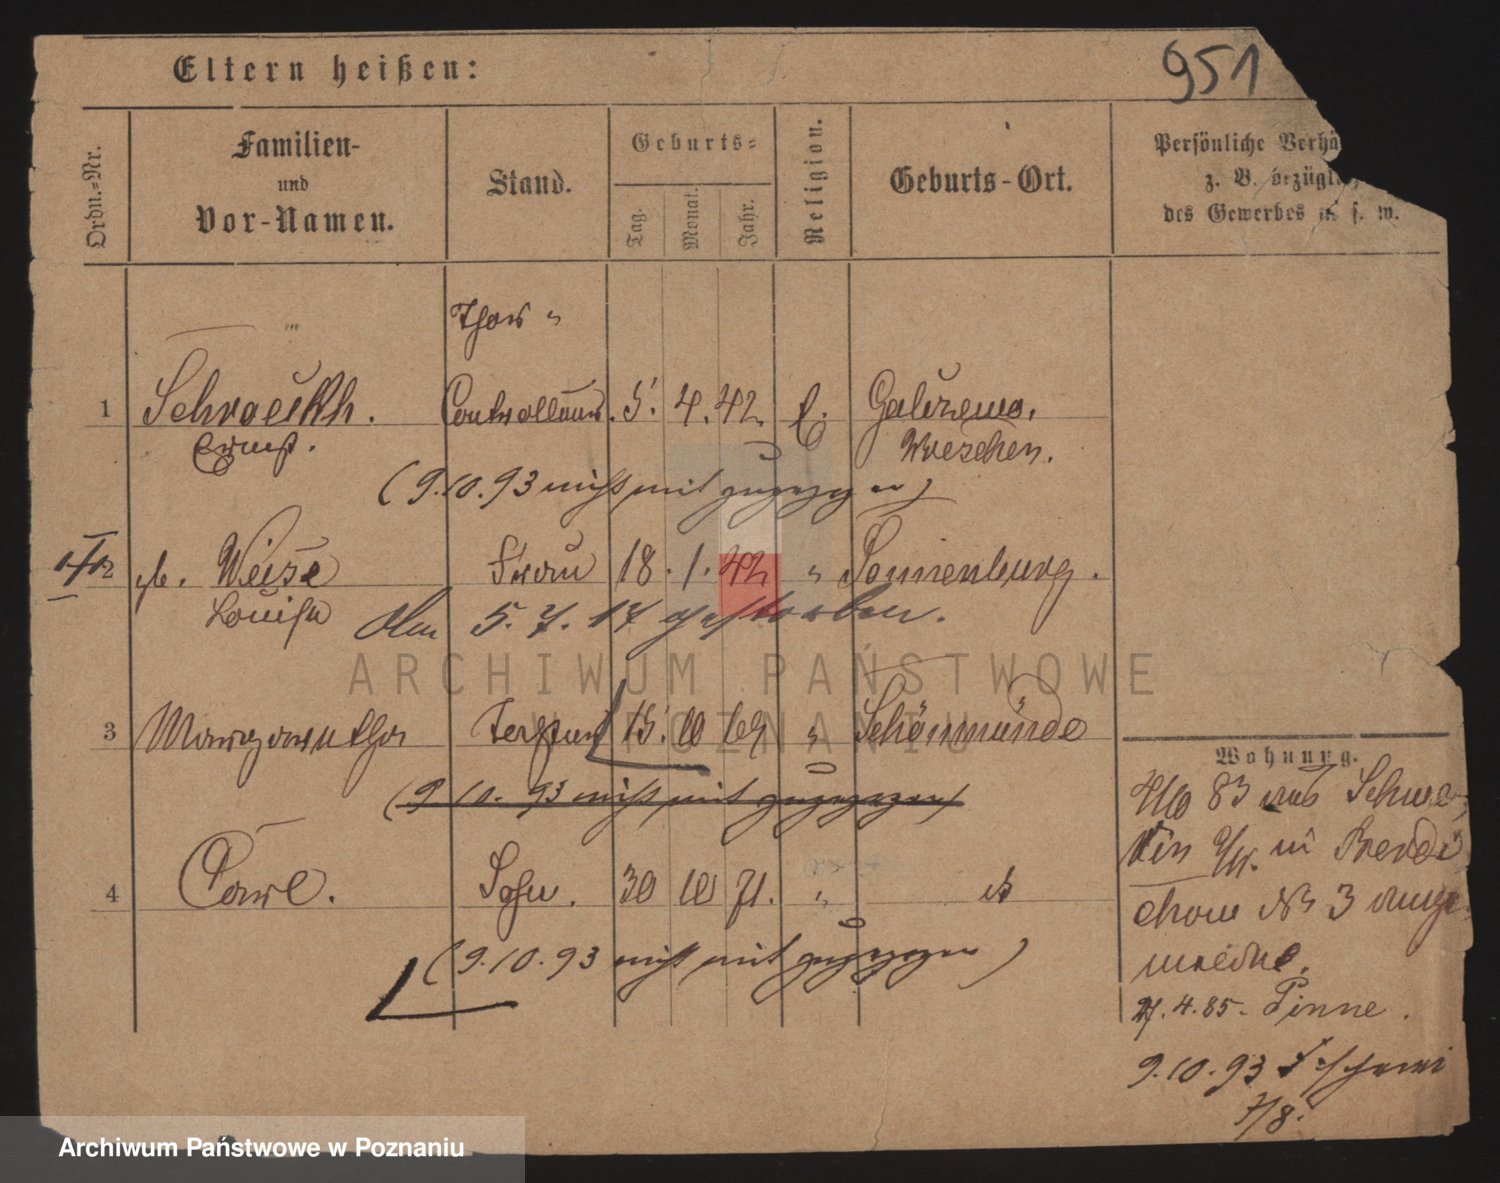 951
Eltern heißen:
Ordn.-Nr.
Familien-
und
Vor-Namen.
Stand.
Geburts-
Tag.
Monat.
Jahr.
Religion.
Geburts-Ort.
Persönliche Verhä
z. B. bezügl
des Gewerbes u. s. w.
1
Controlleur. 5. 4. 42.
Ernst.
Wreschen.
(9.10.93 nicht mit zugezogen)
2
Weise
Frau 18. 1. 42 " Sonnenburg.
Louise
Am 5. 7. 17 gestorben.
ARCHIWUM PAŃSTWOWE
W POZNANIU
3
Margaretha
15. 10 69 " Schönmünde
(9.10.93 nicht mit zugezogen)
4
Carl.
Sohn. 30 10 71. "
(9.10.93 nicht mit zugezogen)
Wohnung.
83 aus
in
No 3
27.4.85. Pinne.
9.10.93
7/8.
Archiwum Państwowe w Poznaniu